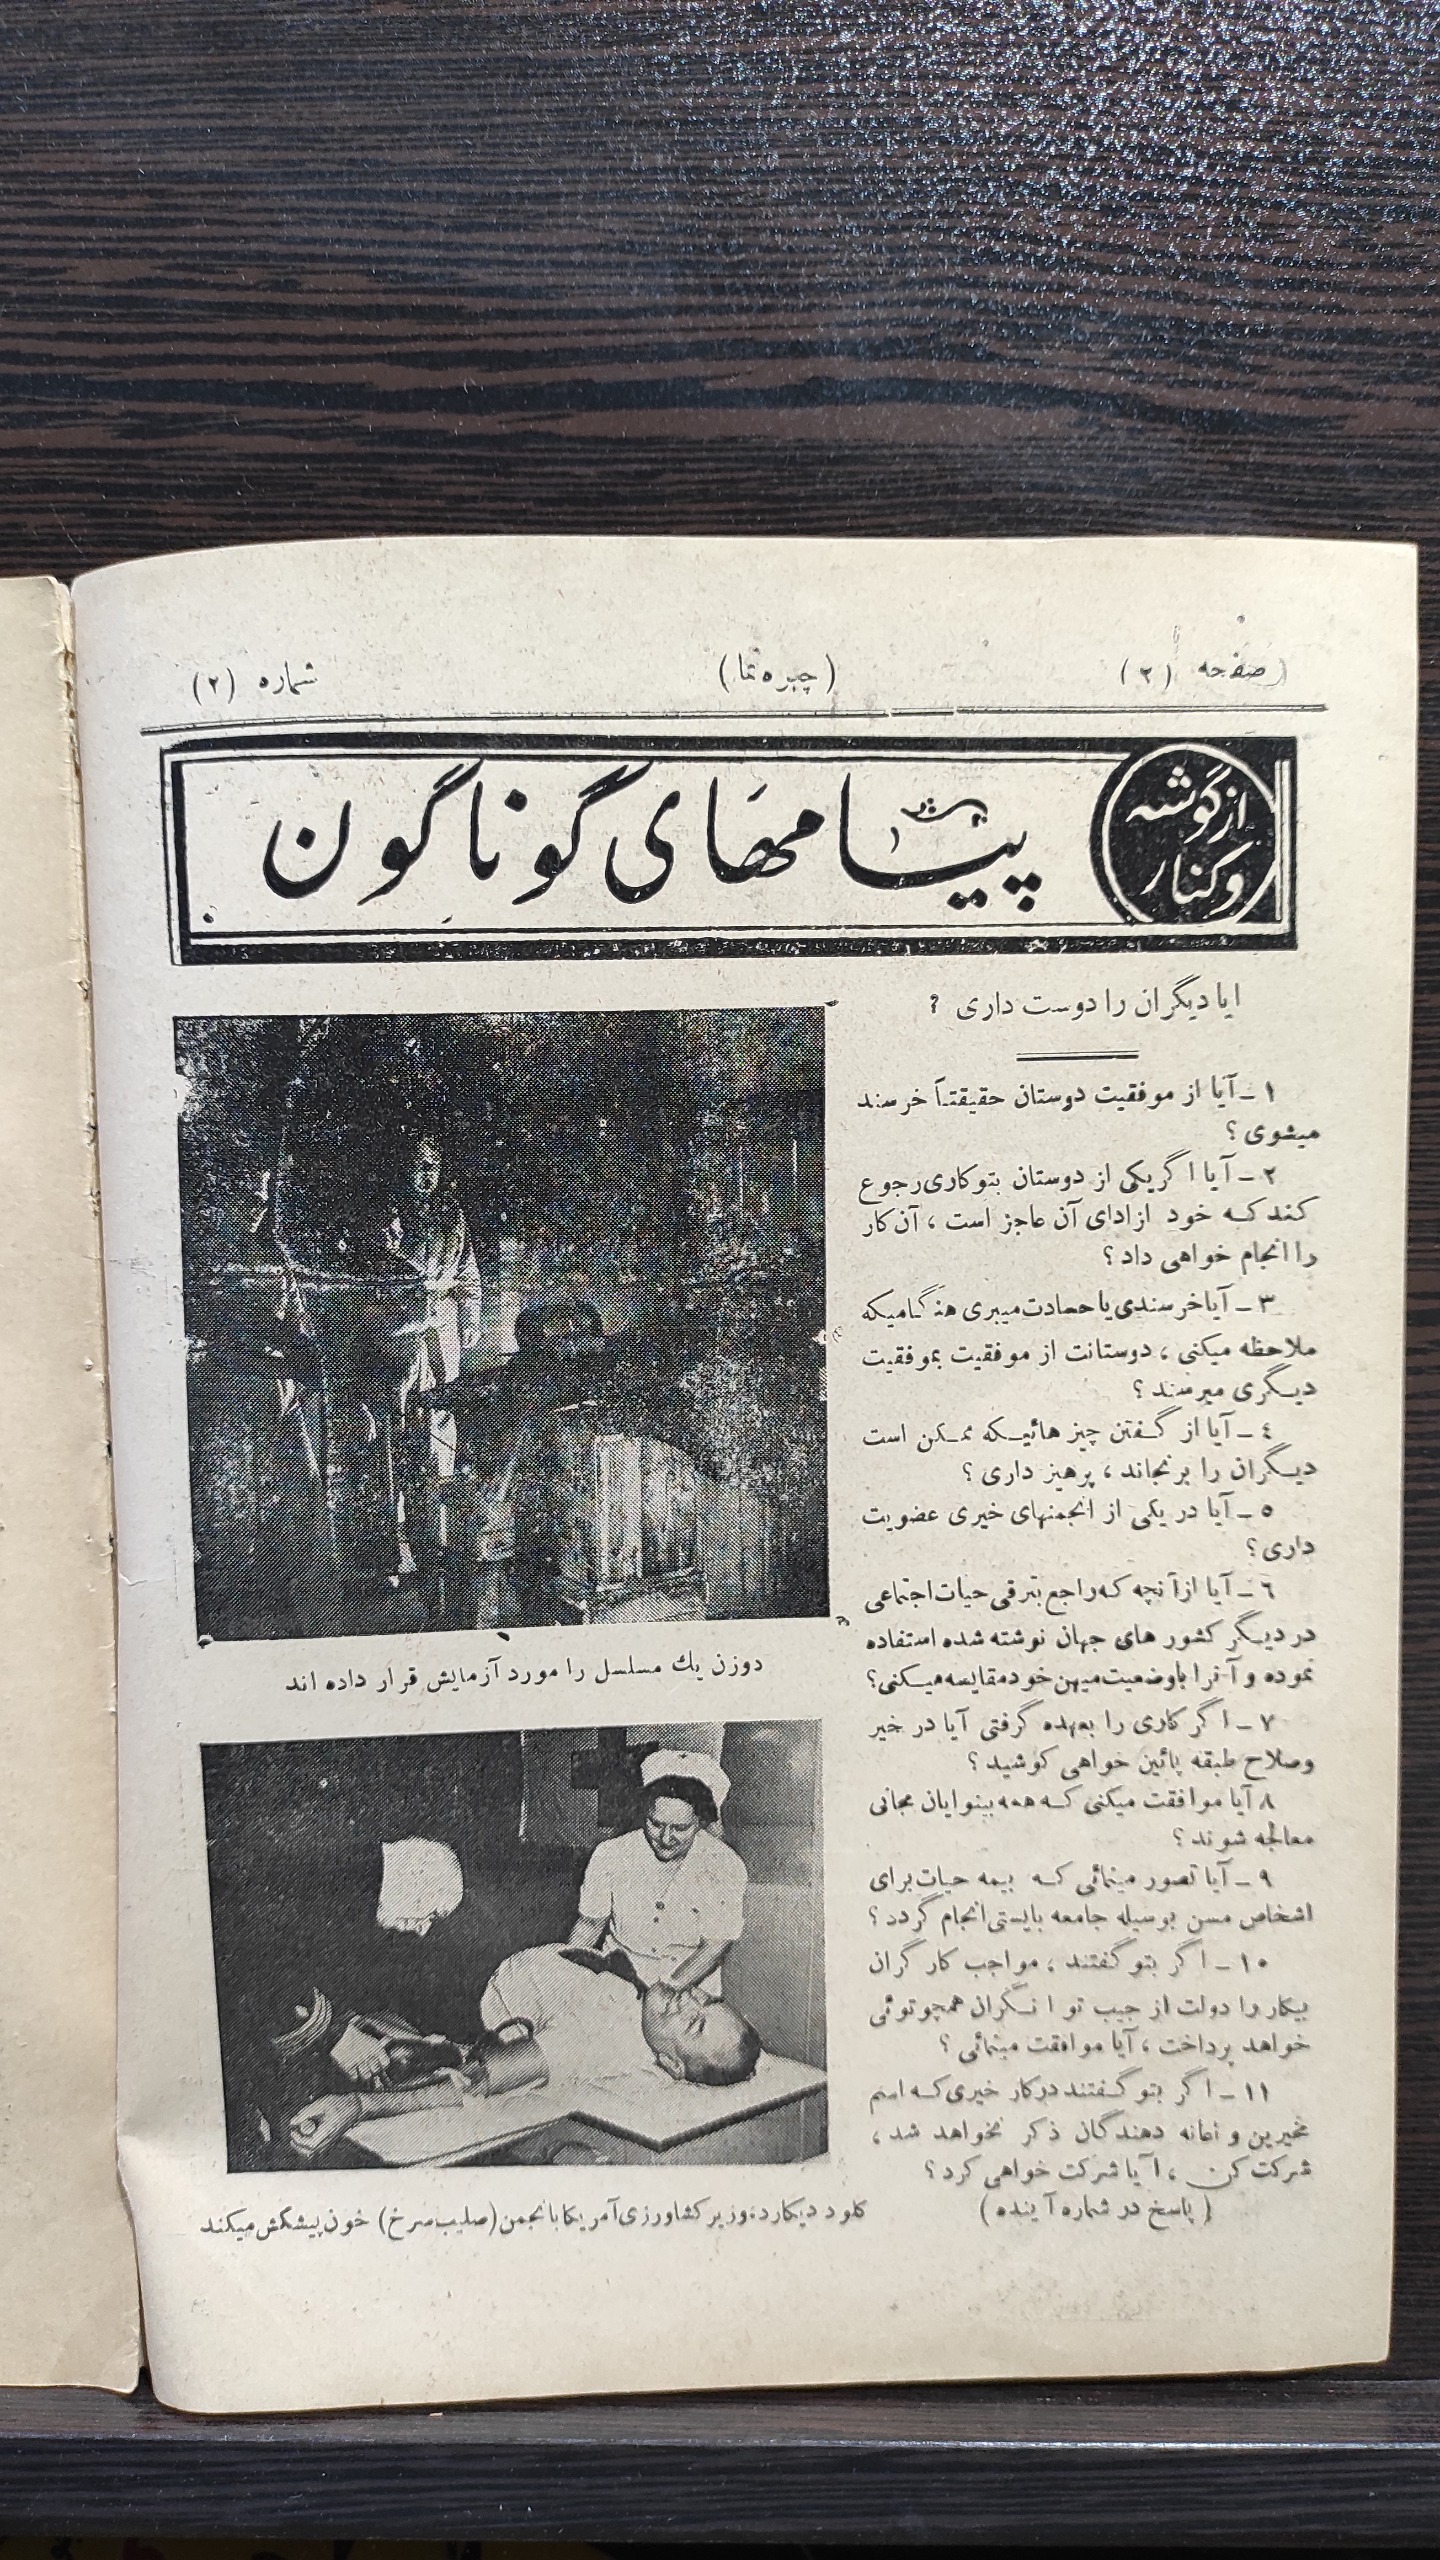 صفحه (۲)
(چهره نما)
شماره (۲)
از گوشه
و کنار
پیامهای گوناگون
ایا دیگران را دوست داری ?
۱ ـ آیا از موفقیت دوستان حقیقتاً خرسند
میشوی ؟
۲ ـ آیا اگر یکی از دوستان بتو کاری رجوع
کند که خود از ادای آن عاجز است ، آن کار
را انجام خواهی داد ؟
۳ ـ آیا خرسندی یا حسادت میبری هنگامیکه
ملاحظه میکنی ، دوستانت از موفقیت بموفقیت
دیگری میرسند ؟
٤ ـ آیا از گفتن چیز هائیکه ممکن است
دیگران را برنجاند ، پرهیز داری ؟
٥ ـ آیا در یکی از انجمنهای خیری عضویت
داری ؟
٦ ـ آیا از آنچه که راجع بترقی حیات اجتماعی
در دیگر کشور های جهان نوشته شده استفاده
نموده و آنرا با وضعیت میهن خود مقایسه میکنی ؟
۷ ـ اگر کاری را بعهده گرفتی آیا در خیر
وصلاح طبقه پائین خواهی کوشید ؟
۸ آیا موافقت میکنی که همه بینوایان مجانی
معالجه شوند ؟
۹ ـ آیا تصور مینمائی که بیمه حیات برای
اشخاص مسن بوسیله جامعه بایستی انجام گردد ؟
۱۰ ـ اگر بتو گفتند ، مواجب کارگران
بیکار را دولت از جیب توانگران همچو توئی
خواهد پرداخت ، آیا موافقت مینمائی ؟
۱۱ ـ اگر بتو گفتند در کار خیری که اسم
مخیرین و اعانه دهندگان ذکر نخواهد شد ،
شرکت کن ، آیا شرکت خواهی کرد ؟
( پاسخ در شماره آینده )
دوزن یك مسلسل را مورد آزمایش قرار داده اند
کلود دیکارد، وزیر کشاورزی آمریکا بانجمن (صلیب سرخ) خون پیشکش میکند